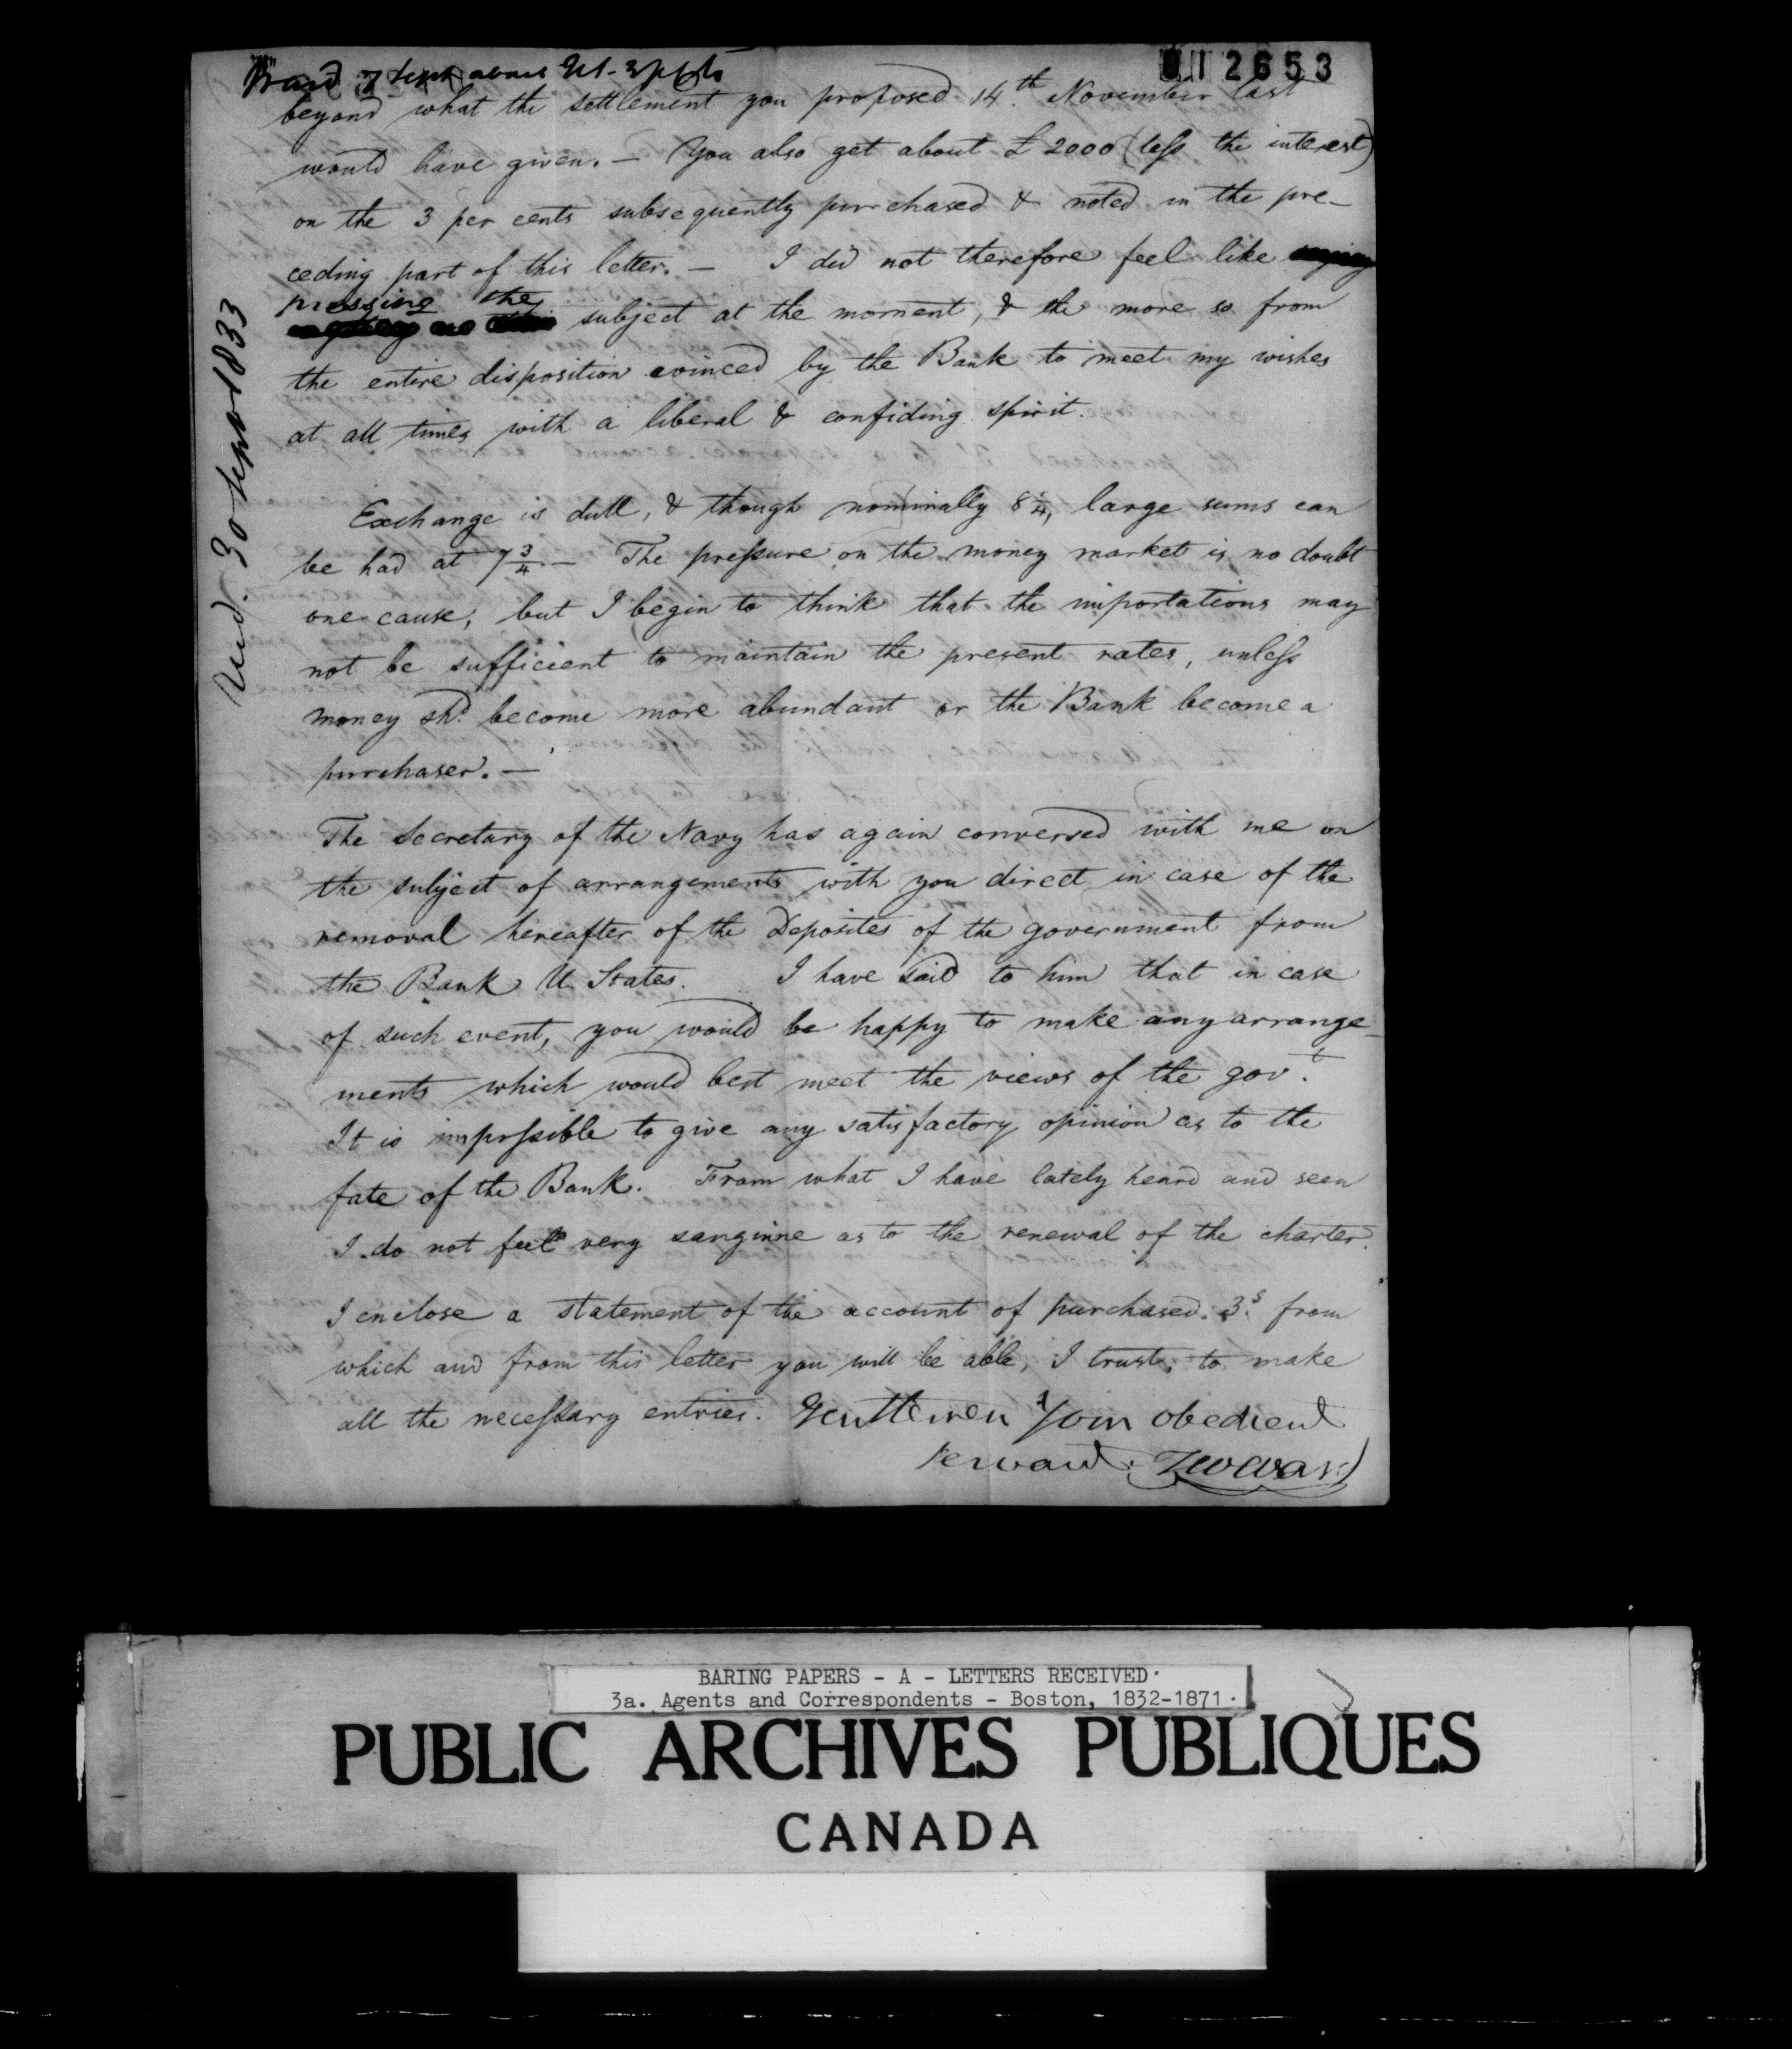 012653
Ward 7 Sept about US. 3 pCts
beyond what the settlement you proposed 14.th November last
would have given. — You also get about £2000 (less the interest)
on the 3 per cents subsequently purchased & noted in the pre-
ceding part of this letter. — I did not therefore feel like
pressing the
subject at the moment, & the more so from
the entire disposition evinced by the Bank to meet my wishes
at all times with a liberal & confiding spirit.
Exchange is dull, & though nominally 8¼, large sums can
be had at 7¾. — The pressure on the money market is no doubt
one cause, but I begin to think that the importations may
not be sufficient to maintain the present rates, unless
money shd. become more abundant or the Bank become a
purchaser. —
The Secretary of the Navy has again conversed with me on
the subject of arrangements with you direct in case of the
removal hereafter of the Deposites of the government from
the Bank U. States. I have said to him that in case
of such event, you would be happy to make any arrange-
ments which would best meet the views of the govt.
It is impossible to give any satisfactory opinion as to the
fate of the Bank. From what I have lately heard and seen
I do not feel very sanguine as to the renewal of the charter.
I enclose a statement of the account of purchased 3.s from
which and from this letter you will be able, I trust, to make
all the necessary entries. Gentlemen Your obedient
servant. TWWard
Recd. 30 Sept 1833
BARING PAPERS - A - LETTERS RECEIVED.
3a. Agents and Correspondents - Boston, 1832-1871.
PUBLIC ARCHIVES PUBLIQUES
CANADA